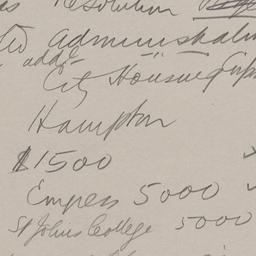 as resolution
ted administration
add.
City Housing Corp
Hampton
$1500
Empress 5000
St Johns College 5000